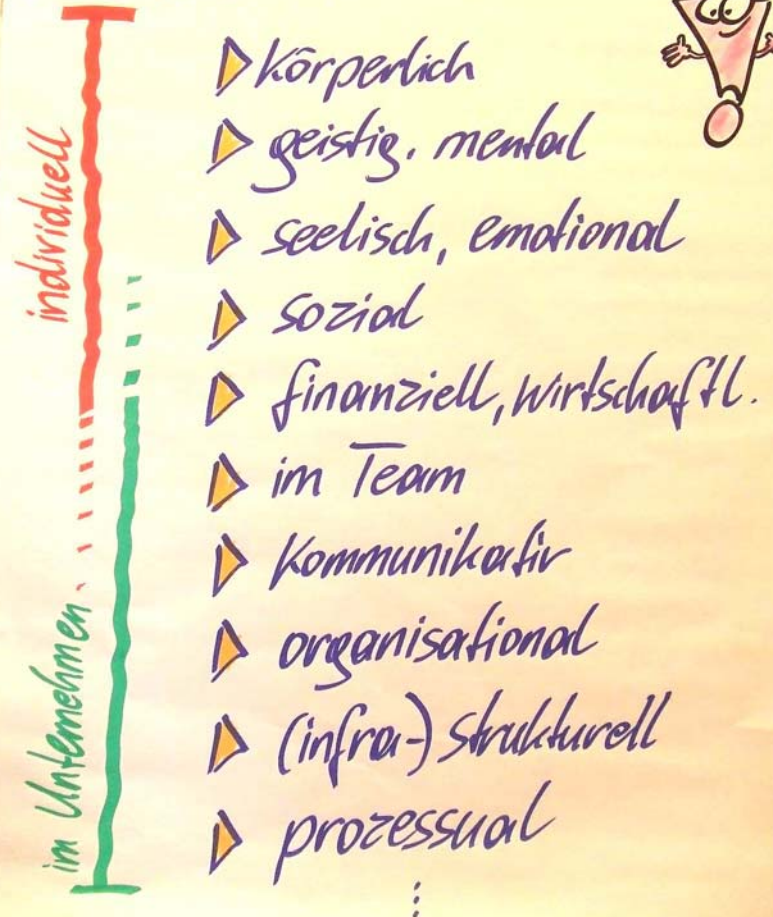 individuell
im Unternehmen
körperlich
geistig, mental
seelisch, emotional
sozial
finanziell, wirtschaftl.
im Team
kommunikativ
organisational
(infra-) strukturell
prozessual